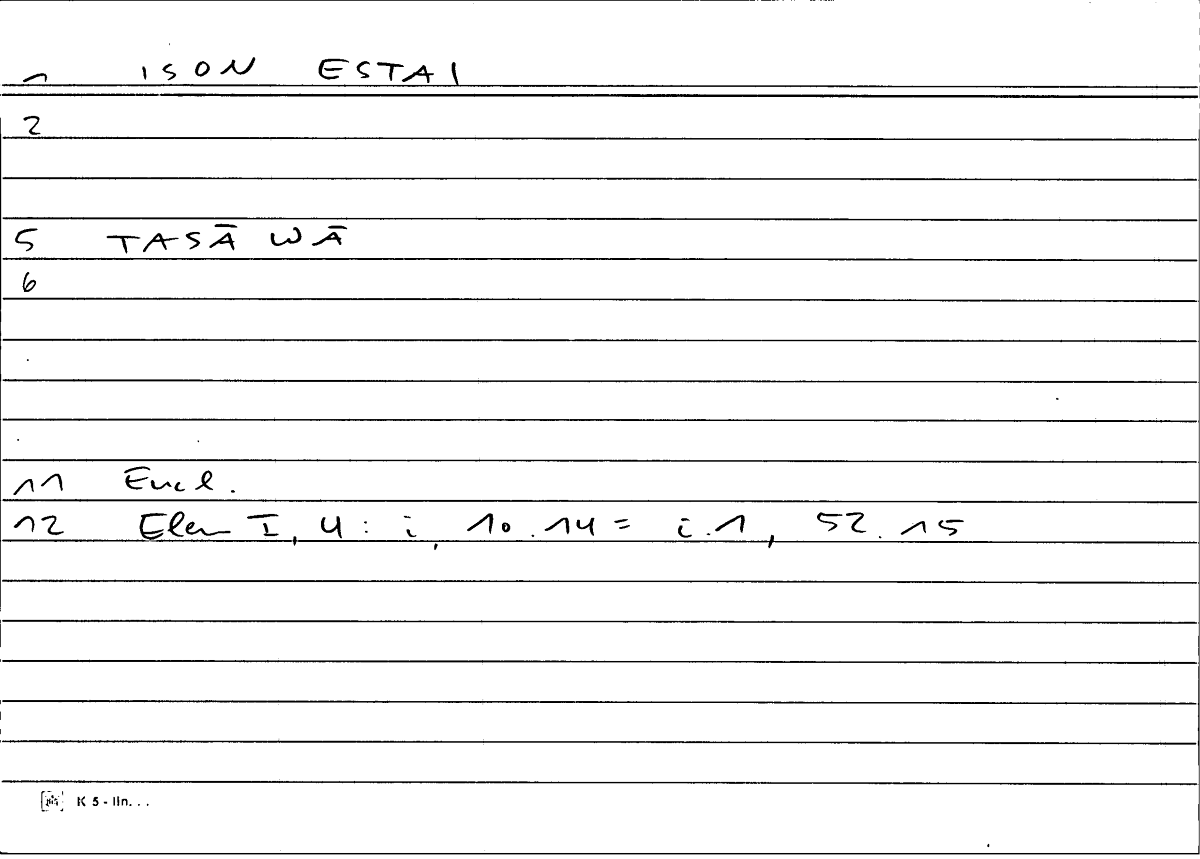 1 ISON ESTAI
2
5 TASĀWĀ
6
11 Eucl.
12 Elem I, 4: i, 10.14 = i.1, 52.15
K 5 - lin. . .